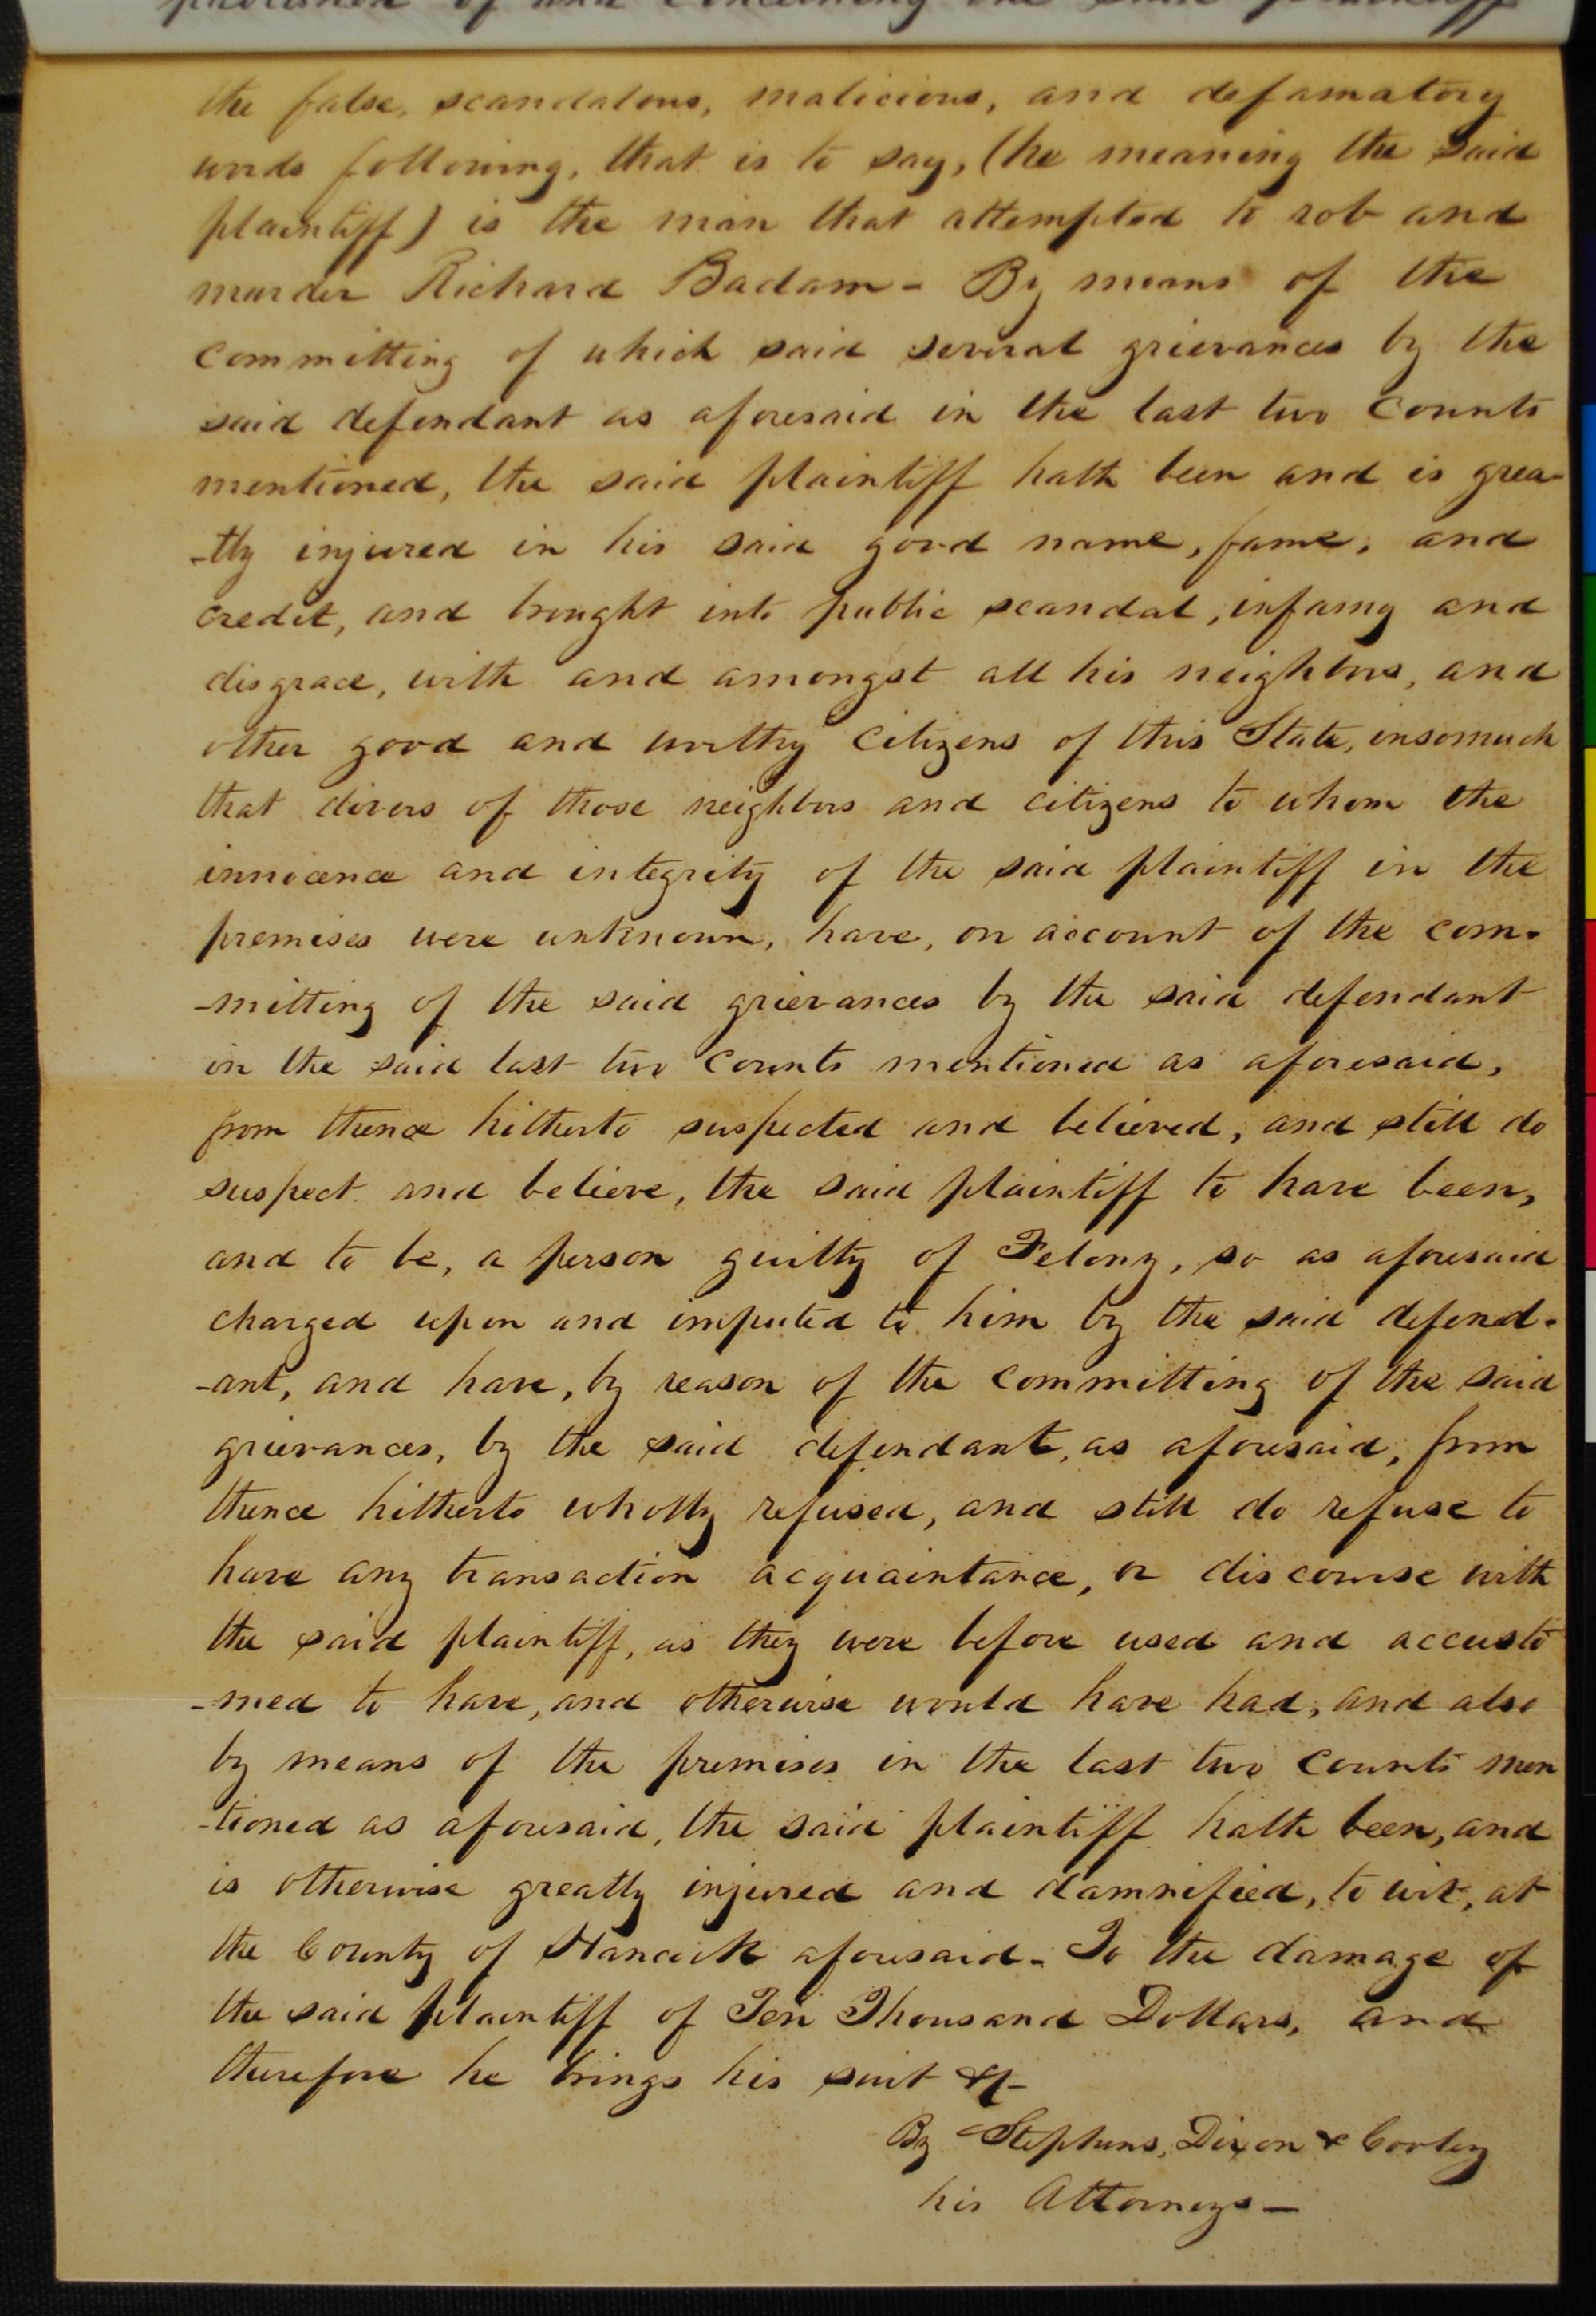 published of and concerning the said plaintiff
the false, scandalous, malicious, and defamatory
words following, that is to say, (he meaning the said
plaintiff) is the man that attempted to rob and
murder Richard Badam - By means of the
committing of which said several grievances by the
said defendant as aforesaid in the last two Counts
mentioned, the said plaintiff hath been and is grea-
-tly injured in his said good name, fame, and
credit, and brought into public scandal, infamy and
disgrace, with and amongst all his neighbors, and
other good and worthy Citizens of this State, insomuch
that divers of those neighbors and citizens to whom the
innocence and integrity of the said plaintiff in the
premises were unknown, have, on account of the com-
-mitting of the said grievances by the said defendant
in the said last two Counts mentioned as aforesaid,
from thence hitherto suspected and believed, and still do
suspect and believe, the said plaintiff to have been,
and to be, a person guilty of Felony, so as aforesaid
charged upon and imputed to him by the said defend-
-ant, and have, by reason of the committing of the said
grievances, by the said defendant, as aforesaid, from
thence hitherto wholly refused, and still do refuse to
have any transaction acquaintance, or discourse with
the said plaintiff, as they were before used and accusto
-med to have, and otherwise would have had, and also
by means of the premises in the last two Counts men
-tioned as aforesaid, the said plaintiff hath been, and
is otherwise greatly injured and damnified, to wit, at
the County of Hancock aforesaid - To the damage of
the said plaintiff of Ten Thousand Dollars, and
therefore he brings his suit &c-
By Stephens, Dixon & Cooley
his Attorneys -